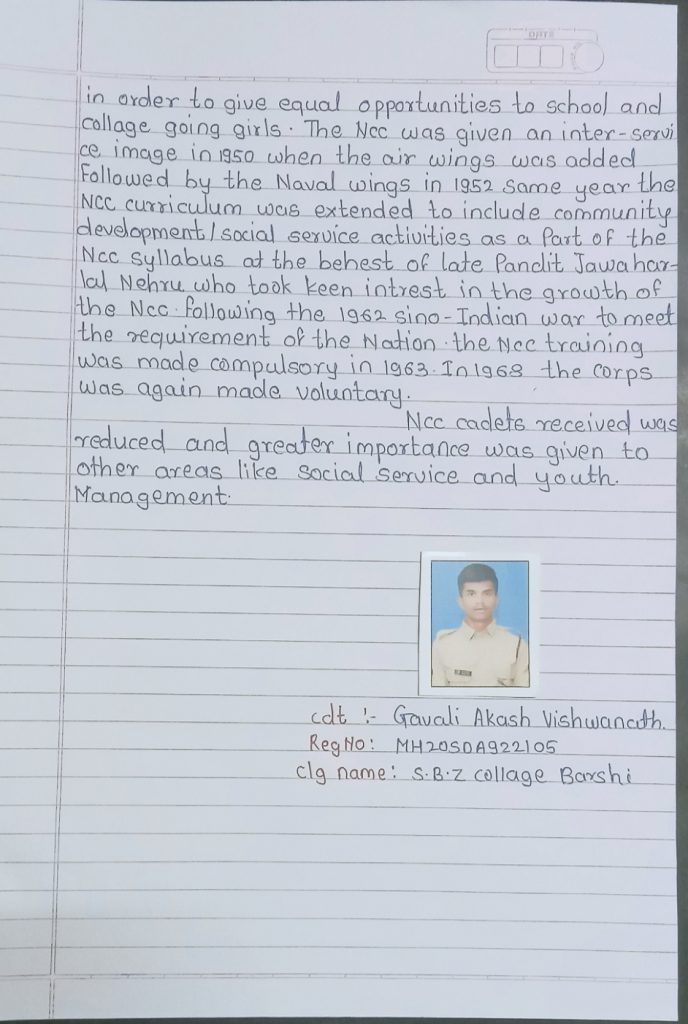 DATE
in order to give equal opportunities to school and
collage going girls. The Ncc was given an inter-servi
ce image in 1950 when the air wings was added
Followed by the Naval wings in 1952 same year the
NCC curriculum was extended to include community
development/social service activities as a Part of the
Ncc syllabus at the behest of late Pandit Jawahar-
lal Nehru who took keen intrest in the growth of
the Ncc. following the 1962 sino-Indian war to meet
the requirement of the Nation. the Ncc training
was made compulsory in 1963. In 1968 the corps
was again made voluntary.
Ncc cadets received was
reduced and greater importance was given to
other areas like social service and youth.
Management.
cdt :- Gavali Akash Vishwanath.
Reg No: MH20SDA922105
clg name: S.B.Z collage Barshi